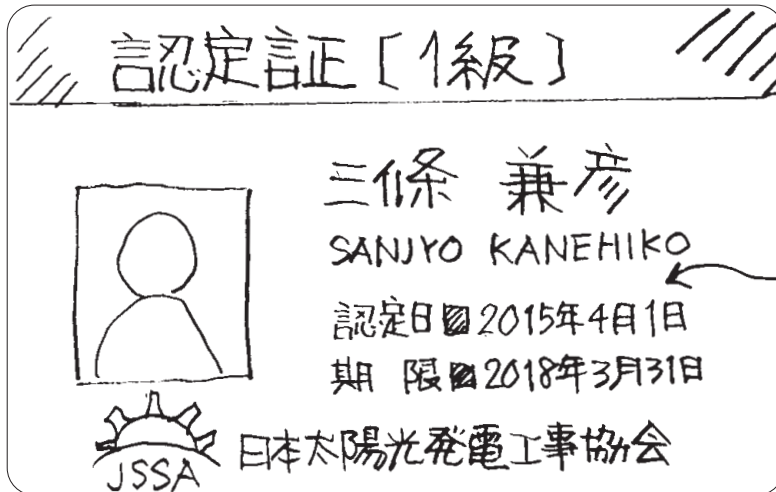 認定証[1級]
三條 兼彦
SANJYO KANEHIKO
認定日 2015年4月1日
期 限 2018年3月31日
JSSA 日本太陽光発電工事協会